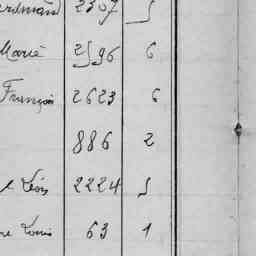 2367 5
Marié 2596 6
François 2623 6
886 2
Léon 2224 5
Louis 63 1